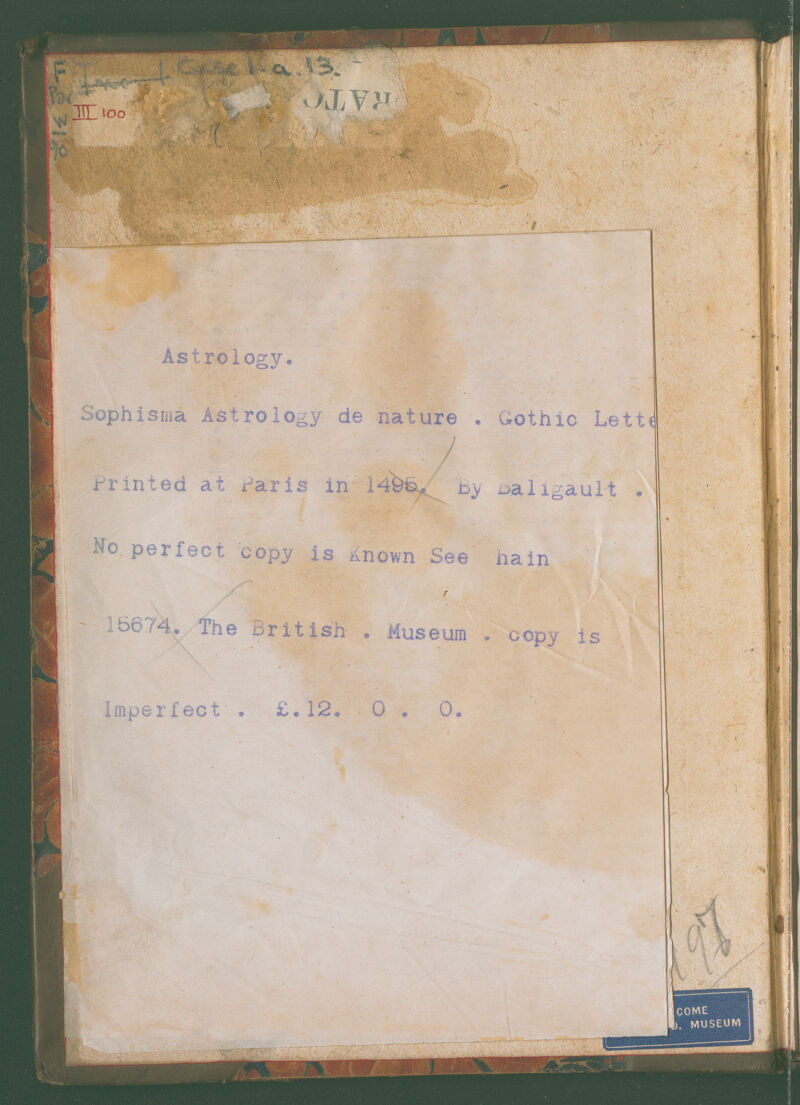 F
Case I.a.13.
III 100
RATO
Astrology.
Sophisma Astrology de nature . Gothic Lette
Printed at Paris in 1495. By Baligault .
No perfect copy is Known See hain
15674. The British . Museum . copy is
Imperfect . £.12. 0 . 0.
COME
D. MUSEUM